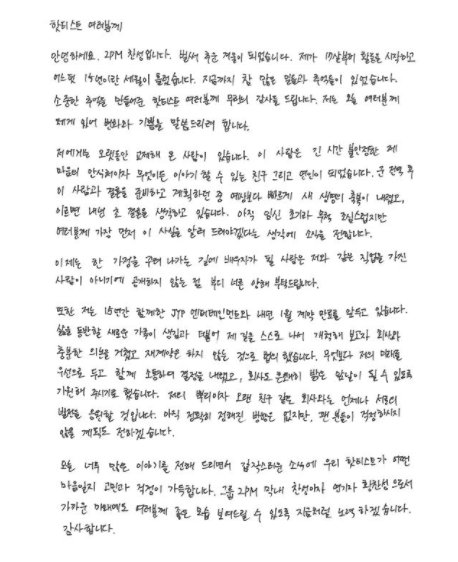 핫티스트 여러분께
안녕하세요. 2PM 찬성입니다. 벌써 추운 겨울이 되었습니다. 제가 17살부터 활동을 시작하고
어느덧 15년이란 세월이 흘렀습니다. 지금까지 참 많은 일들과 추억들이 있었습니다.
소중한 추억을 만들어준 핫티스트 여러분께 무한히 감사를 드립니다. 저는 오늘 여러분께
제게 있어 변화와 기쁨을 말씀드리려 합니다.
저에게는 오랫동안 교제해 온 사람이 있습니다. 이 사람은 긴 시간 불안정한 제
마음의 안식처이자 무엇이든 이야기 할 수 있는 친구 그리고 연인이 되었습니다. 군 전역 후
이 사람과 결혼을 준비하고 계획하던 중 예상보다 빠르게 새 생명의 축복이 내렸고,
이르면 내년 초 결혼을 생각하고 있습니다. 아직 임신 초기라 무척 조심스럽지만
여러분께 가장 먼저 이 사실을 알려 드려야겠다는 생각에 소식을 전합니다.
이제는 한 가정을 꾸려 나가는 길에 배우자가 될 사람은 저와 같은 직업을 가진
사람이 아니기에 공개하지 않는 점 부디 너른 양해 부탁드립니다.
또한 저는 15년간 함께한 JYP 엔터테인먼트와 내년 1월 계약 만료를 앞두고 있습니다.
삶을 동반할 새로운 가족이 생김과 더불어 제 길을 스스로 나서 개척해 보고자 회사와
충분한 의논을 거쳤고 재계약은 하지 않는 것으로 협의 했습니다. 무엇보다 저의 미래를
우선으로 두고 함께 소통하며 결정을 내렸고, 회사도 은퇴 밝은 앞날이 될 수 있도록
기원해 주시기로 했습니다. 저의 뿌리이자 오랜 친구 같은 회사와는 언제나 서로의
발전을 응원할 것입니다. 아직 정확히 정해진 방향은 없지만, 팬 분들이 걱정하시지
않을 계획도 전하겠습니다.
오늘 너무 많은 이야기를 전해 드리면서 갑작스러운 소식에 우리 핫티스트가 어떤
마음일지 고민과 걱정이 가득합니다. 그룹 2PM 막내 찬성이자 연기자 황찬성으로서
가까운 미래에도 여러분께 좋은 모습 보여드릴 수 있도록 지금처럼 노력하겠습니다.
감사합니다.